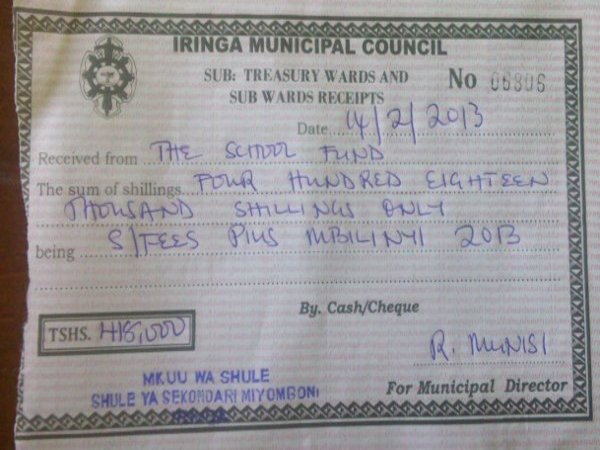 IRINGA MUNICIPAL COUNCIL
SUB: TREASURY WARDS AND
SUB WARDS RECEIPTS
No 06806
Date 14/2/2013
Received from THE SCHOOL FUND
The sum of shillings FOUR HUNDRED EIGHTEEN
THOUSAND SHILLINGS ONLY
being S/FEES PIUS MBILINYI 2013
By. Cash/Cheque
TSHS. 418,000
R. MUNISI
MKUU WA SHULE
SHULE YA SEKONDARI MIYOMBONI
For Municipal Director